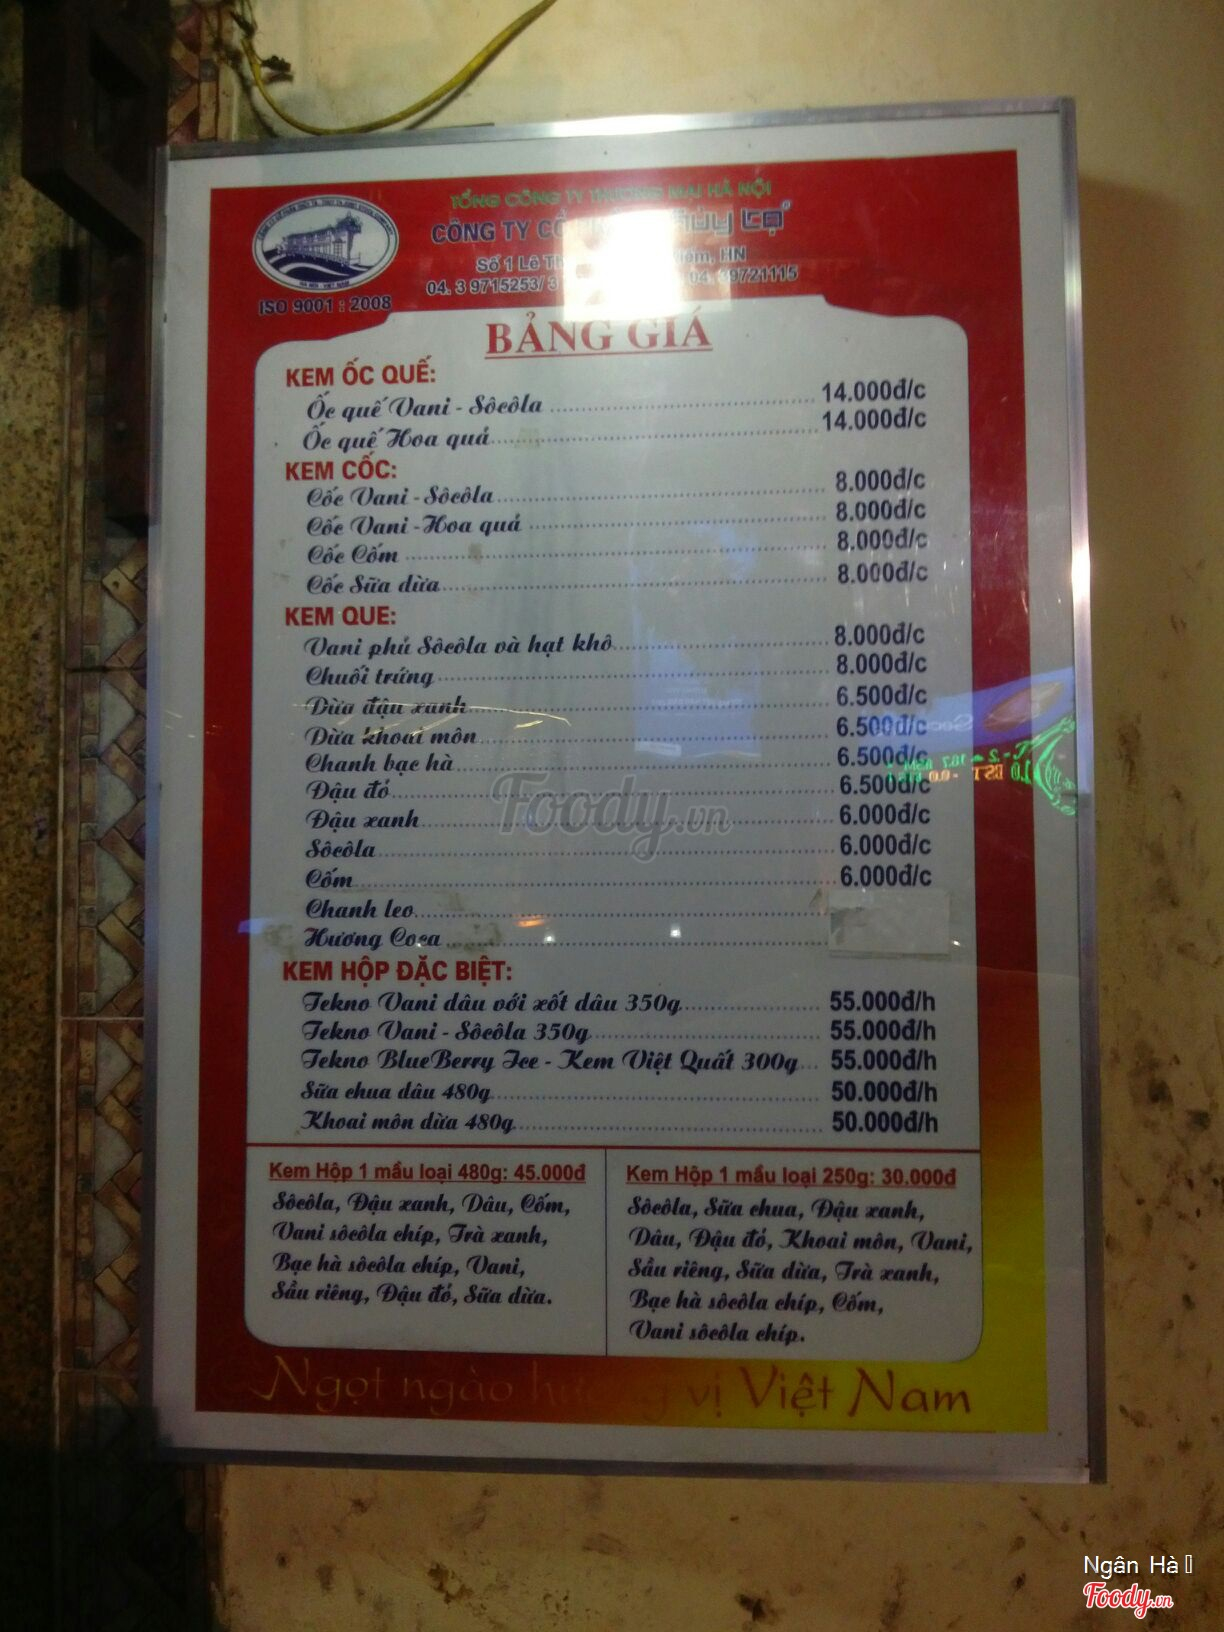 TỔNG CÔNG TY THƯƠNG MẠI HÀ NỘI
CÔNG TY CỔ Thủy Tạ®
Số 1 Lê HN
04. 3 9715253/ 3 04. 39721115
ISO 9001 : 2008
BẢNG GIÁ
KEM ỐC QUẾ:
Ốc quế Vani - Sôcôla 14.000đ/c
Ốc quế Hoa quả 14.000đ/c
KEM CỐC:
Cốc Vani - Sôcôla 8.000đ/c
Cốc Vani - Hoa quả 8.000đ/c
Cốc Cốm 8.000đ/c
Cốc Sữa dừa 8.000đ/c
KEM QUE:
Vani phủ Sôcôla và hạt khô 8.000đ/c
Chuối trứng 8.000đ/c
Dừa đậu xanh 6.500đ/c
Dừa khoai môn 6.500đ/c
Chanh bạc hà 6.500đ/c
Đậu đỏ 6.500đ/c
Đậu xanh 6.000đ/c
Sôcôla 6.000đ/c
Cốm 6.000đ/c
Chanh leo
Hương Coca
KEM HỘP ĐẶC BIỆT:
Tekno Vani dâu với xốt dâu 350g 55.000đ/h
Tekno Vani - Sôcôla 350g 55.000đ/h
Tekno BlueBerry Ice - Kem Việt Quất 300g 55.000đ/h
Sữa chua dâu 480g 50.000đ/h
Khoai môn dừa 480g 50.000đ/h
Kem Hộp 1 mầu loại 480g: 45.000đ
Sôcôla, Đậu xanh, Dâu, Cốm,
Vani sôcôla chíp, Trà xanh,
Bạc hà sôcôla chíp, Vani,
Sầu riêng, Đậu đỏ, Sữa dừa.
Kem Hộp 1 mầu loại 250g: 30.000đ
Sôcôla, Sữa chua, Đậu xanh,
Dâu, Đậu đỏ, Khoai môn, Vani,
Sầu riêng, Sữa dừa, Trà xanh,
Bạc hà sôcôla chíp, Cốm,
Vani sôcôla chíp.
Ngọt ngào hương vị Việt Nam
Foody.vn
Ngân Hà
Foody.vn